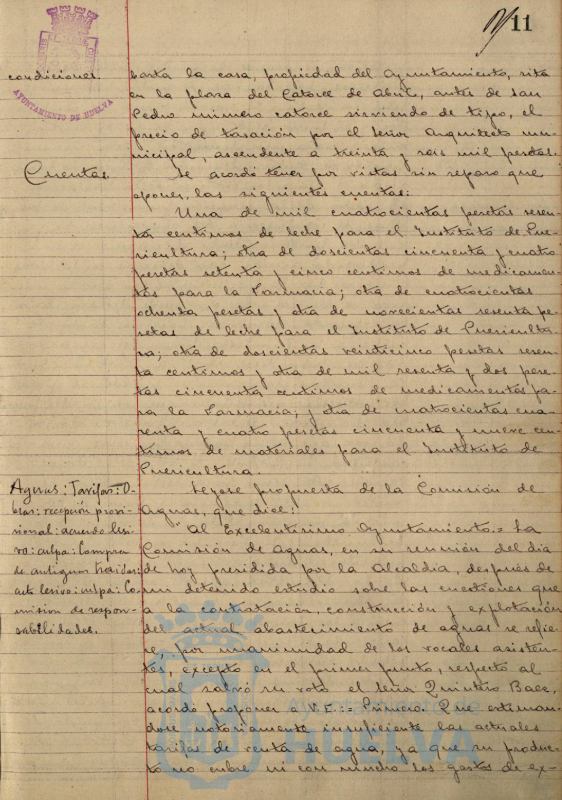 11
AYUNTAMIENTO DE HUELVA
condiciones.
basta la casa, propiedad del Ayuntamiento, sita
en la plaza del Catorce de Abril, antes de San
Pedro número catorce sirviendo de tipo, el
precio de tasación por el Señor Arquitecto mu-
nicipal, ascendente a treinta y seis mil pesetas.
Cuentas.
Se acordó tener por vistas sin reparo que
oponer, las siguientes cuentas:
Una de mil cuatrocientas pesetas sesen-
ta centimos de leche para el Instituto de Pue-
ricultura; otra de doscientas cincuenta y cuatro
pesetas setenta y cinco centimos de medicamen-
tos para la Farmacia; otra de cuatrocientas
ochenta pesetas y otra de novecientas sesenta pe-
setas de leche para el Instituto de Puericultu-
ra; otra de doscientas veinticinco pesetas sesen-
ta centimos y otra de mil sesenta y dos pese-
tas cincuenta centimos de medicamentos pa-
ra la Farmacia; y otra de cuatrocientas cua-
renta y cuatro pesetas cincuenta y nueve cen-
timos de materiales para el Instituto de
Puericultura.
Aguas: Tarifas: O-
bras: recepción provi-
sional: acuerdo lesi-
vo: culpa: Compra
de antiguas tuberias:
acto lesivo: culpa: Co-
mision de respon-
sabilidades.
Leyose propuesta de la Comisión de
Aguas, que dice:
"Al Excelentísimo Ayuntamiento.= La
Comisión de Aguas, en su reunión del día
de hoy presidida por la Alcaldia, después de
un detenido estudio sobre las cuestiones que
a la contratación, construcción y explotación
del actual abastecimiento de aguas se refie-
re, por unanimidad de los vocales asisten-
tes, excepto en el primer punto, respecto al
cual salvó su voto el señor Quintero Baez,
acordó proponer a V.E.:= Primero. Que estiman-
dose notoriamente insuficiente las actuales
tarifas de venta de agua, ya que su produc-
to no cubre ni con mucho los gastos de ex-
Ayuntamiento de
HUELVA